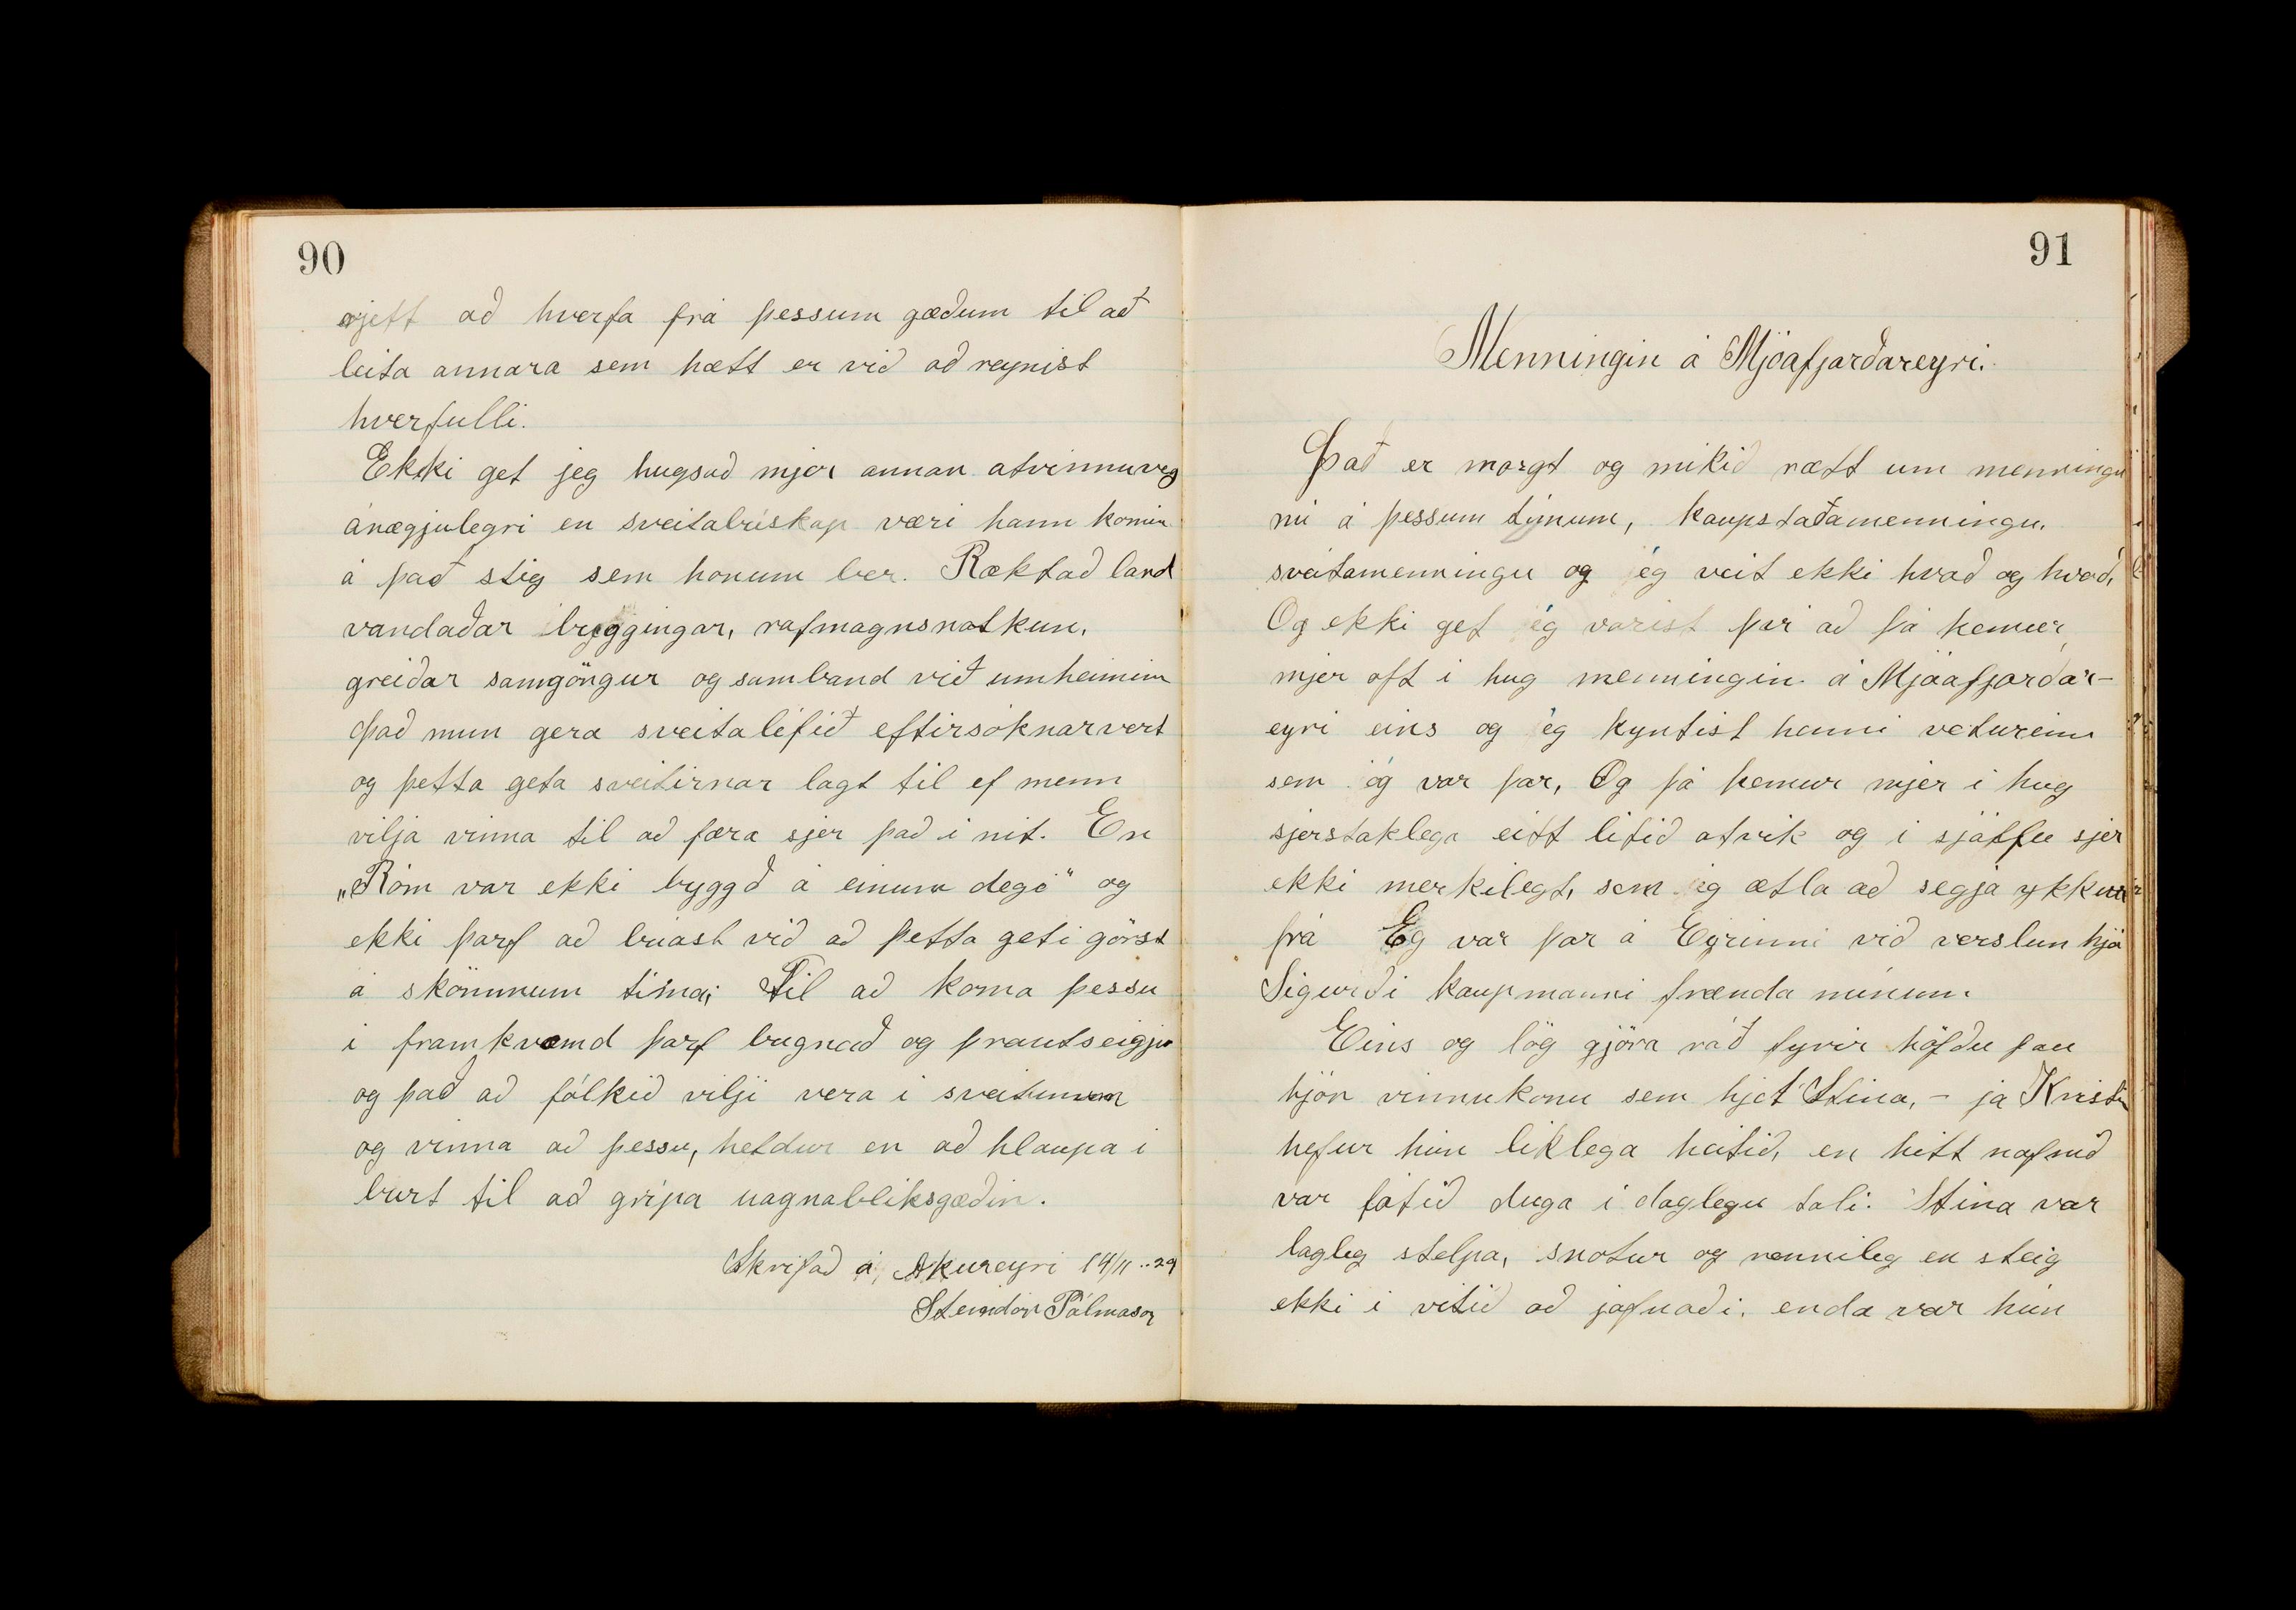 90
rjett að hverfa frá þessum gæðum til að
leita annara sem hætt er við að reynist
hverfulli.
Ekki get jeg hugsað mjer annan atvinnuveg
ánægjulegri en sveitabúskap væri hann komin
á það stig sem honum ber. Ræktað land
vandaðar byggingar, rafmagnsnotkun,
greiðar samgöngur og samband við umheimin
það mun gera sveitalífið eftirsóknarvert
og þetta geta sveitirnar lagt til ef menn
vilja vinna til að færa sjer það í nit. En
„Róm var ekki byggð á einum degi" og
ekki þarf að búast við að þetta geti görst
á skömmum tíma; Til að koma þessu
í framkvæmd þarf dugnað og þrautseigju
og það að fólkið vilji vera í sveitunum
og vinna að þessu, heldur en að hlaupa í
burt til að grípa uagnabliksgæðin.
Skrifað á Akureyri 14/11..29
Steindór Pálmason
91
Menningin á Mjóafjarðareyri.
Það er margt og mikið rætt um menningu
nú á þessum tímum, kaupstaðamenningu,
sveitamenningu og ég veit ekki hvað og hvað,
Og ekki get ég varist því að þá kemur
mjer oft í hug menningin á Mjóafjarðar-
eyri eins og ég kyntist henni veturinn
sem ég var þar, Og þá kemur mjer í hug
sjerstaklega eitt lítið atvik og í sjálfu sjer
ekki merkilegt, sem ég ætla að segja ykkur
frá Eg var þar á Eyrinni við verslun hjá
Sigurði kaupmanni frænda mínum.
Eins og lög gjöra ráð fyrir höfðu þau
hjón vinnukonu sem hjet Stína, - já Kristín
hefur hún líklega heitið, en hitt nafnið
var látið duga í daglegu tali. Stína var
lagleg stelpa, snotur og rennileg en steig
ekki í vitið að jafnaði, enda var hún